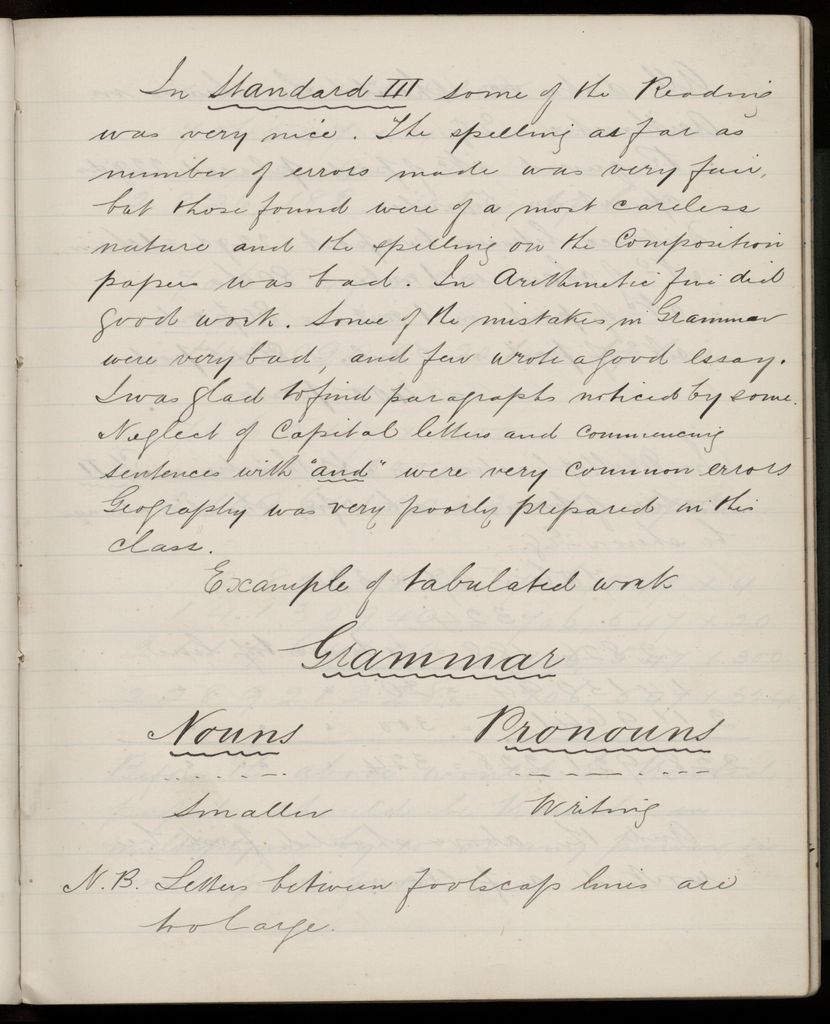 In Standard III some of the Reading
was very nice. The spelling as far as
number of errors made was very fair,
but those found were of a most careless
nature and the spelling on the Composition
papers was bad. In Arithmetic five did
good work. Some of the mistakes in Grammar
were very bad, and few wrote a good essay.
I was glad to find paragraphs noticed by some.
Neglect of Capital letters and commencing
sentences with "and" were very common errors
Geography was very poorly prepared in this
class.
Example of tabulated work
Grammar
Nouns Pronouns
Smaller Writing
N.B. Letters between foolscap lines are
too large.